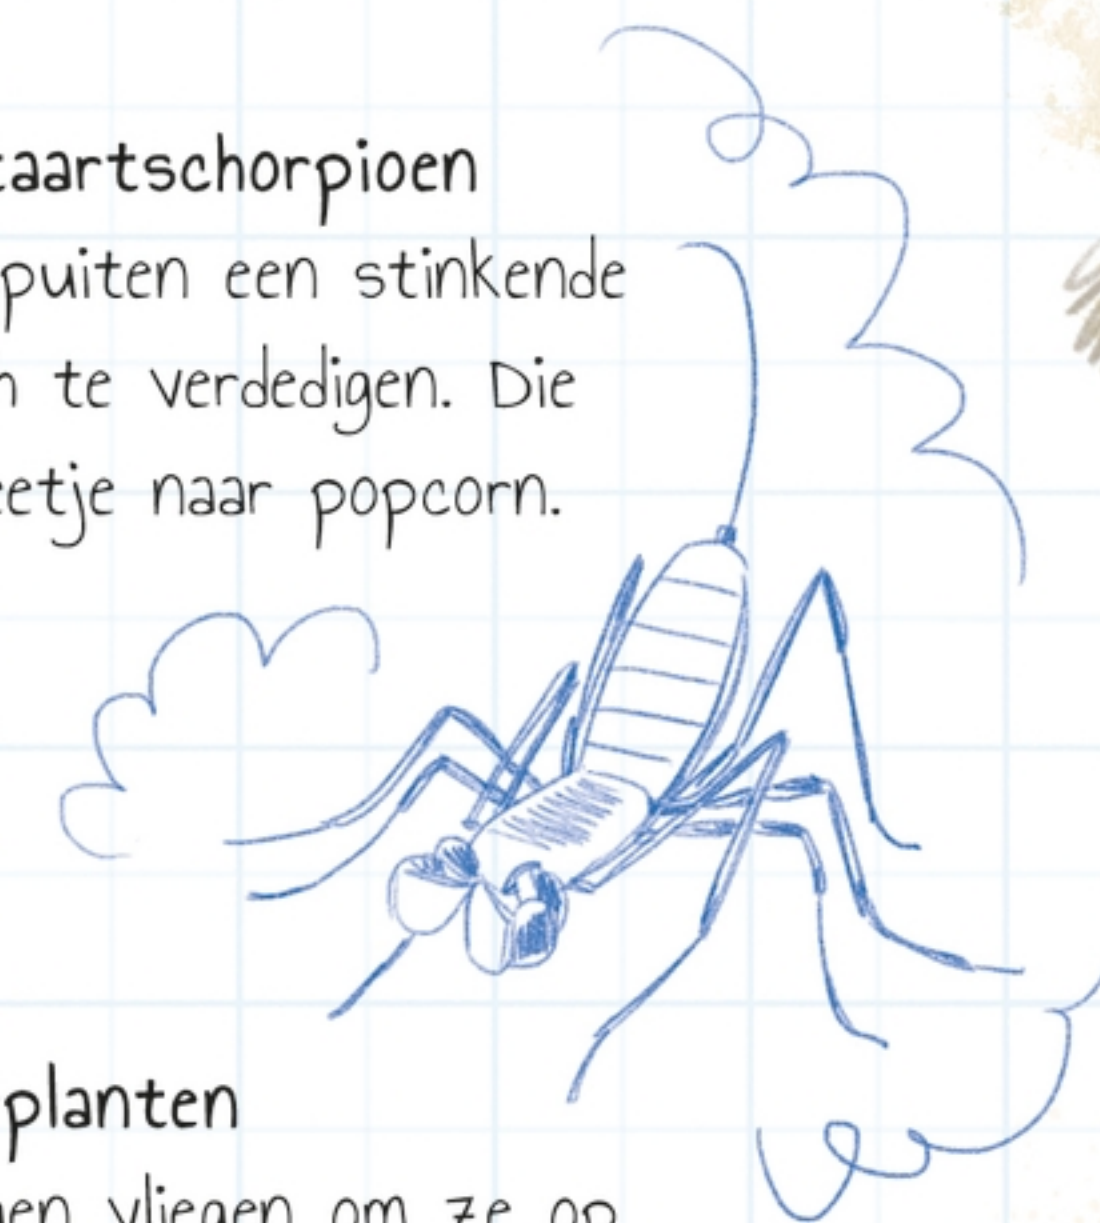 taartschorpioen
puiten een stinkende
te verdedigen. Die
eetje naar popcorn.
planten
vliegen om ze op